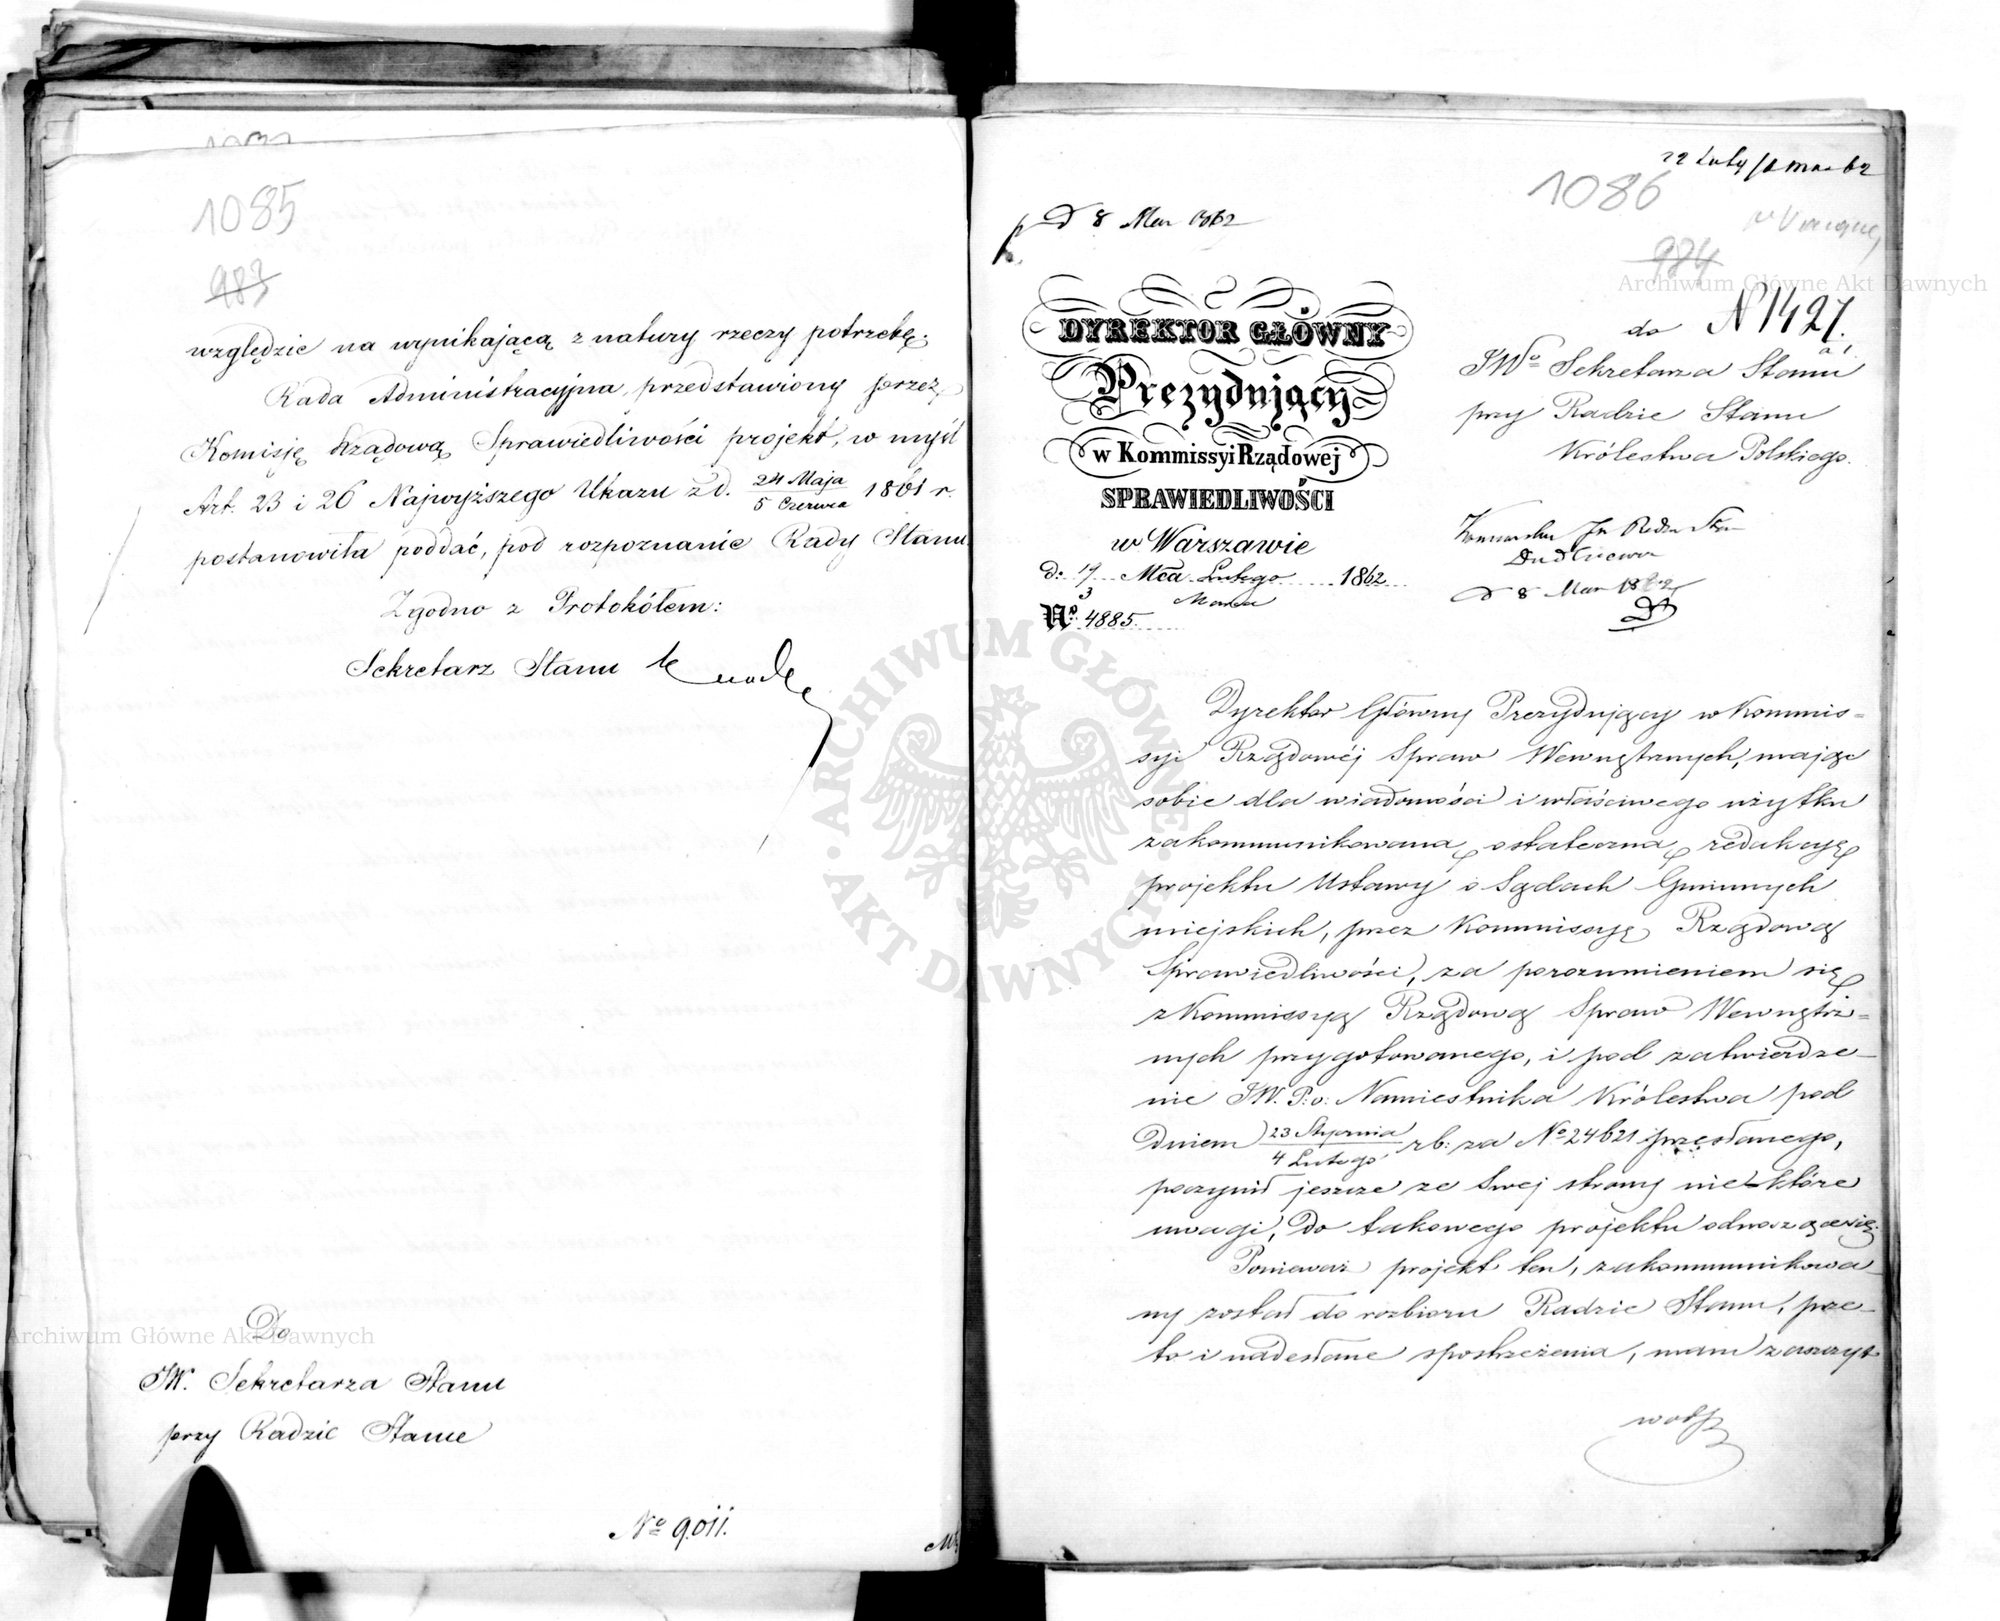 1085
983
względzie na wynikającą z natury rzeczy potrzebę.
Rada Administracyjna, przedstawiony przez
Komisję Rządową Sprawiedliwości projekt, w myśl
Art. 23 i 26 Najwyższego Ukazu z d. 24 Maja / 5 Czerwca 1861 r.
postanowiła poddać, pod rozpoznanie Rady Stanu
Zgodno z Protokółem:
Sekretarz Stanu
Do
JW. Sekretarza Stanu
przy Radzie Stanu
No 9.011.
22 Luty / 62
1086
984
d 8 Mar 1862
DYREKTOR GŁÓWNY
Prezydujący
w Kommissyi Rządowej
SPRAWIEDLIWOŚCI
w Warszawie
d: 19 Mca Lutego 1862
3 Marca
No 4885.
N 1427.
do
JWo Sekretarza Stanu
przy Radzie Stanu
Królestwa Polskiego.
d 8 Mar 1862
Dyrektor Główny Prezydujący w Kommis=
syi Rządowéj Spraw Wewnętrznych, mając
sobie dla wiadomości i właściwego użytku
zakommunikowaną ostateczną redakcyę
projektu Ustawy o Sądach Gminnych
miejskich, przez Kommissyę Rządową
Sprawiedliwości, za porozumieniem się
z Kommissyą Rządową Spraw Wewnętrz=
nych przygotowanego, i pod zatwierdze-
nie JW. P: o: Namiestnika Królestwa pod
dniem 23 Stycznia / 4 Lutego rb: za No 24621 przesłanego,
poczynił jeszcze ze swej strony nie-które
uwagi, do takowego projektu odnoszące się.
Ponieważ projekt ten, zakommunikowa-
ny został do rozbioru Radzie Stanu, prze-
to i nadesłane spostrzeżenia, mam zaszczyt
Archiwum Główne Akt Dawnych
Archiwum Główne Akt Dawnych
ARCHIWUM GŁÓWNE
AKT DAWNYCH